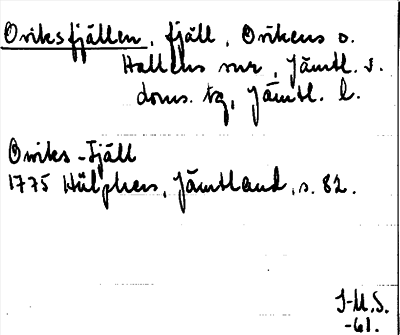 Oviksfjällen, fjäll, Ovikens o.
Hallens snr, Jämtl. s.
doms. tg, Jämtl. l.
Oviks-Fjäll
1775 Hülphers, Jämtland, s. 82.
J-M.S.
-61.